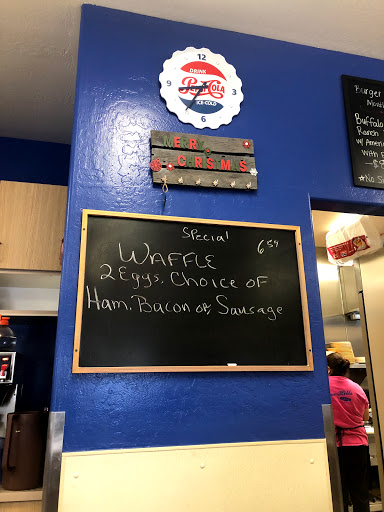 12
3
6
9
DRINK
Pepsi-Cola
ICE-COLD
Special 6 59
WAFFLE
2 Eggs. Choice of
Ham, Bacon or Sausage
Burger
Month
Buffalo
Ranch
w/ Ameri
With F